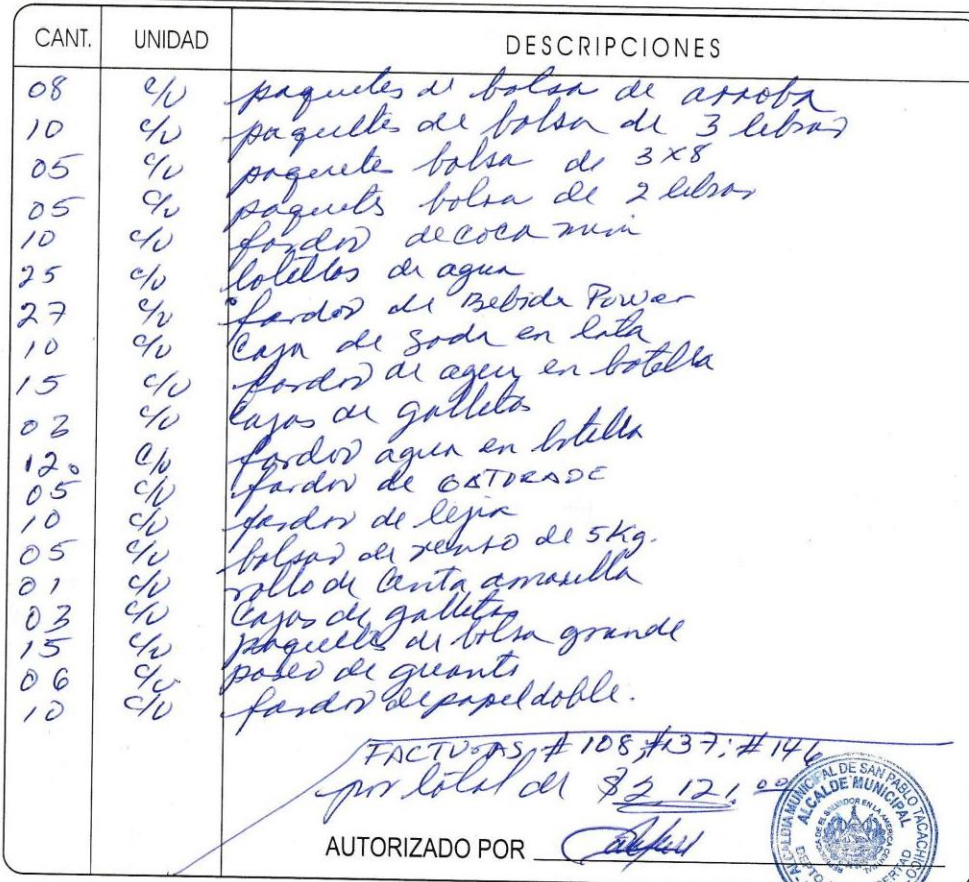 CANT. UNIDAD DESCRIPCIONES
08 c/u paquetes de bolsa de arroba
10 c/u paquetes de bolsa de 3 libras
05 c/u paquete bolsa de 3x8
05 c/u paquets bolsa de 2 libras
10 c/u fardos de coca mini
25 c/u botellas de agua
27 c/u fardos de Bebida Power
10 c/u Caja de Soda en lata
15 c/u fardos de agua en botella
03 c/u Cajas de galletas
12 c/u fardos agua en botella
05 c/u fardos de GATORADE
10 c/u fardos de lejia
05 c/u bolsas de de 5Kg.
01 c/u rollo de Cinta amarilla
03 c/u Cajas de galletas
15 c/u paquetes de bolsa grande
06 c/u de
10 c/u fardos de papel doble.
FACTURAS # 108; #137; #146
por total de $2 121.00
AUTORIZADO POR
ALCALDIA MUNICIPAL DE SAN PABLO TACACHICO
ALCALDE MUNICIPAL